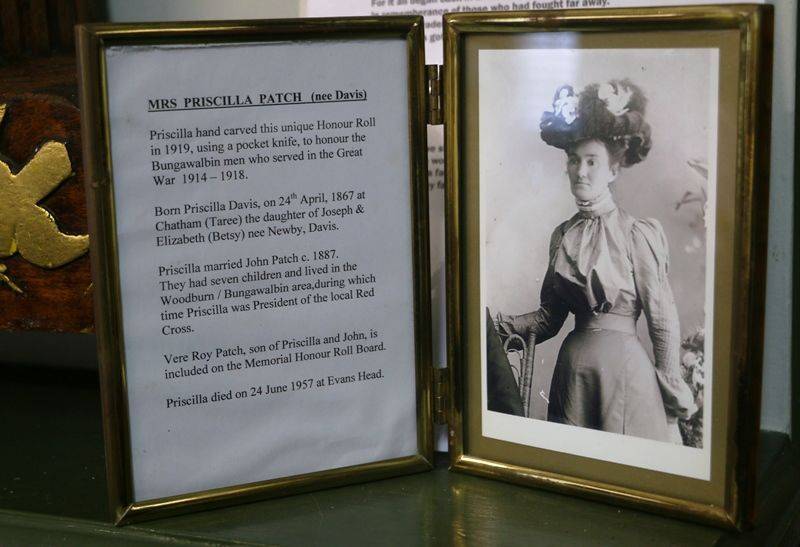 For it all began
In remembrance of those who had fought far away.
MRS PRISCILLA PATCH (nee Davis)
Priscilla hand carved this unique Honour Roll
in 1919, using a pocket knife, to honour the
Bungawalbin men who served in the Great
War 1914 – 1918.
Born Priscilla Davis, on 24th April, 1867 at
Chatham (Taree) the daughter of Joseph &
Elizabeth (Betsy) nee Newby, Davis.
Priscilla married John Patch c. 1887.
They had seven children and lived in the
Woodburn / Bungawalbin area,during which
time Priscilla was President of the local Red
Cross.
Vere Roy Patch, son of Priscilla and John, is
included on the Memorial Honour Roll Board.
Priscilla died on 24 June 1957 at Evans Head.